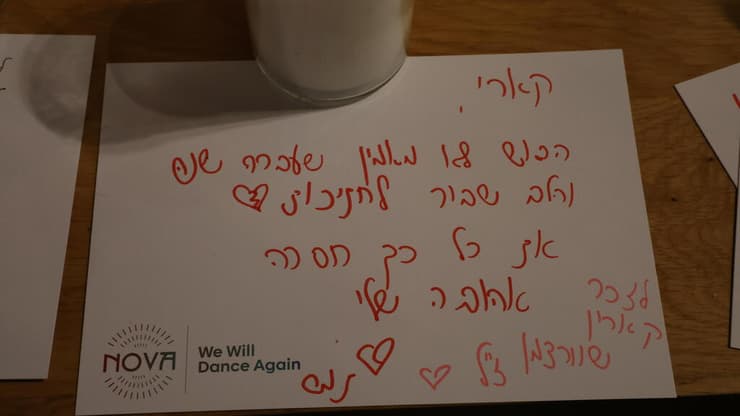 קארי,
הכוש לגו מאמין שעברה שנה
והלב שבור לחתיכות
את כל כך חסרה
אהובה שלי
לזכר
קארין
שוורצמן ז"ל
NOVA
We Will
Dance Again